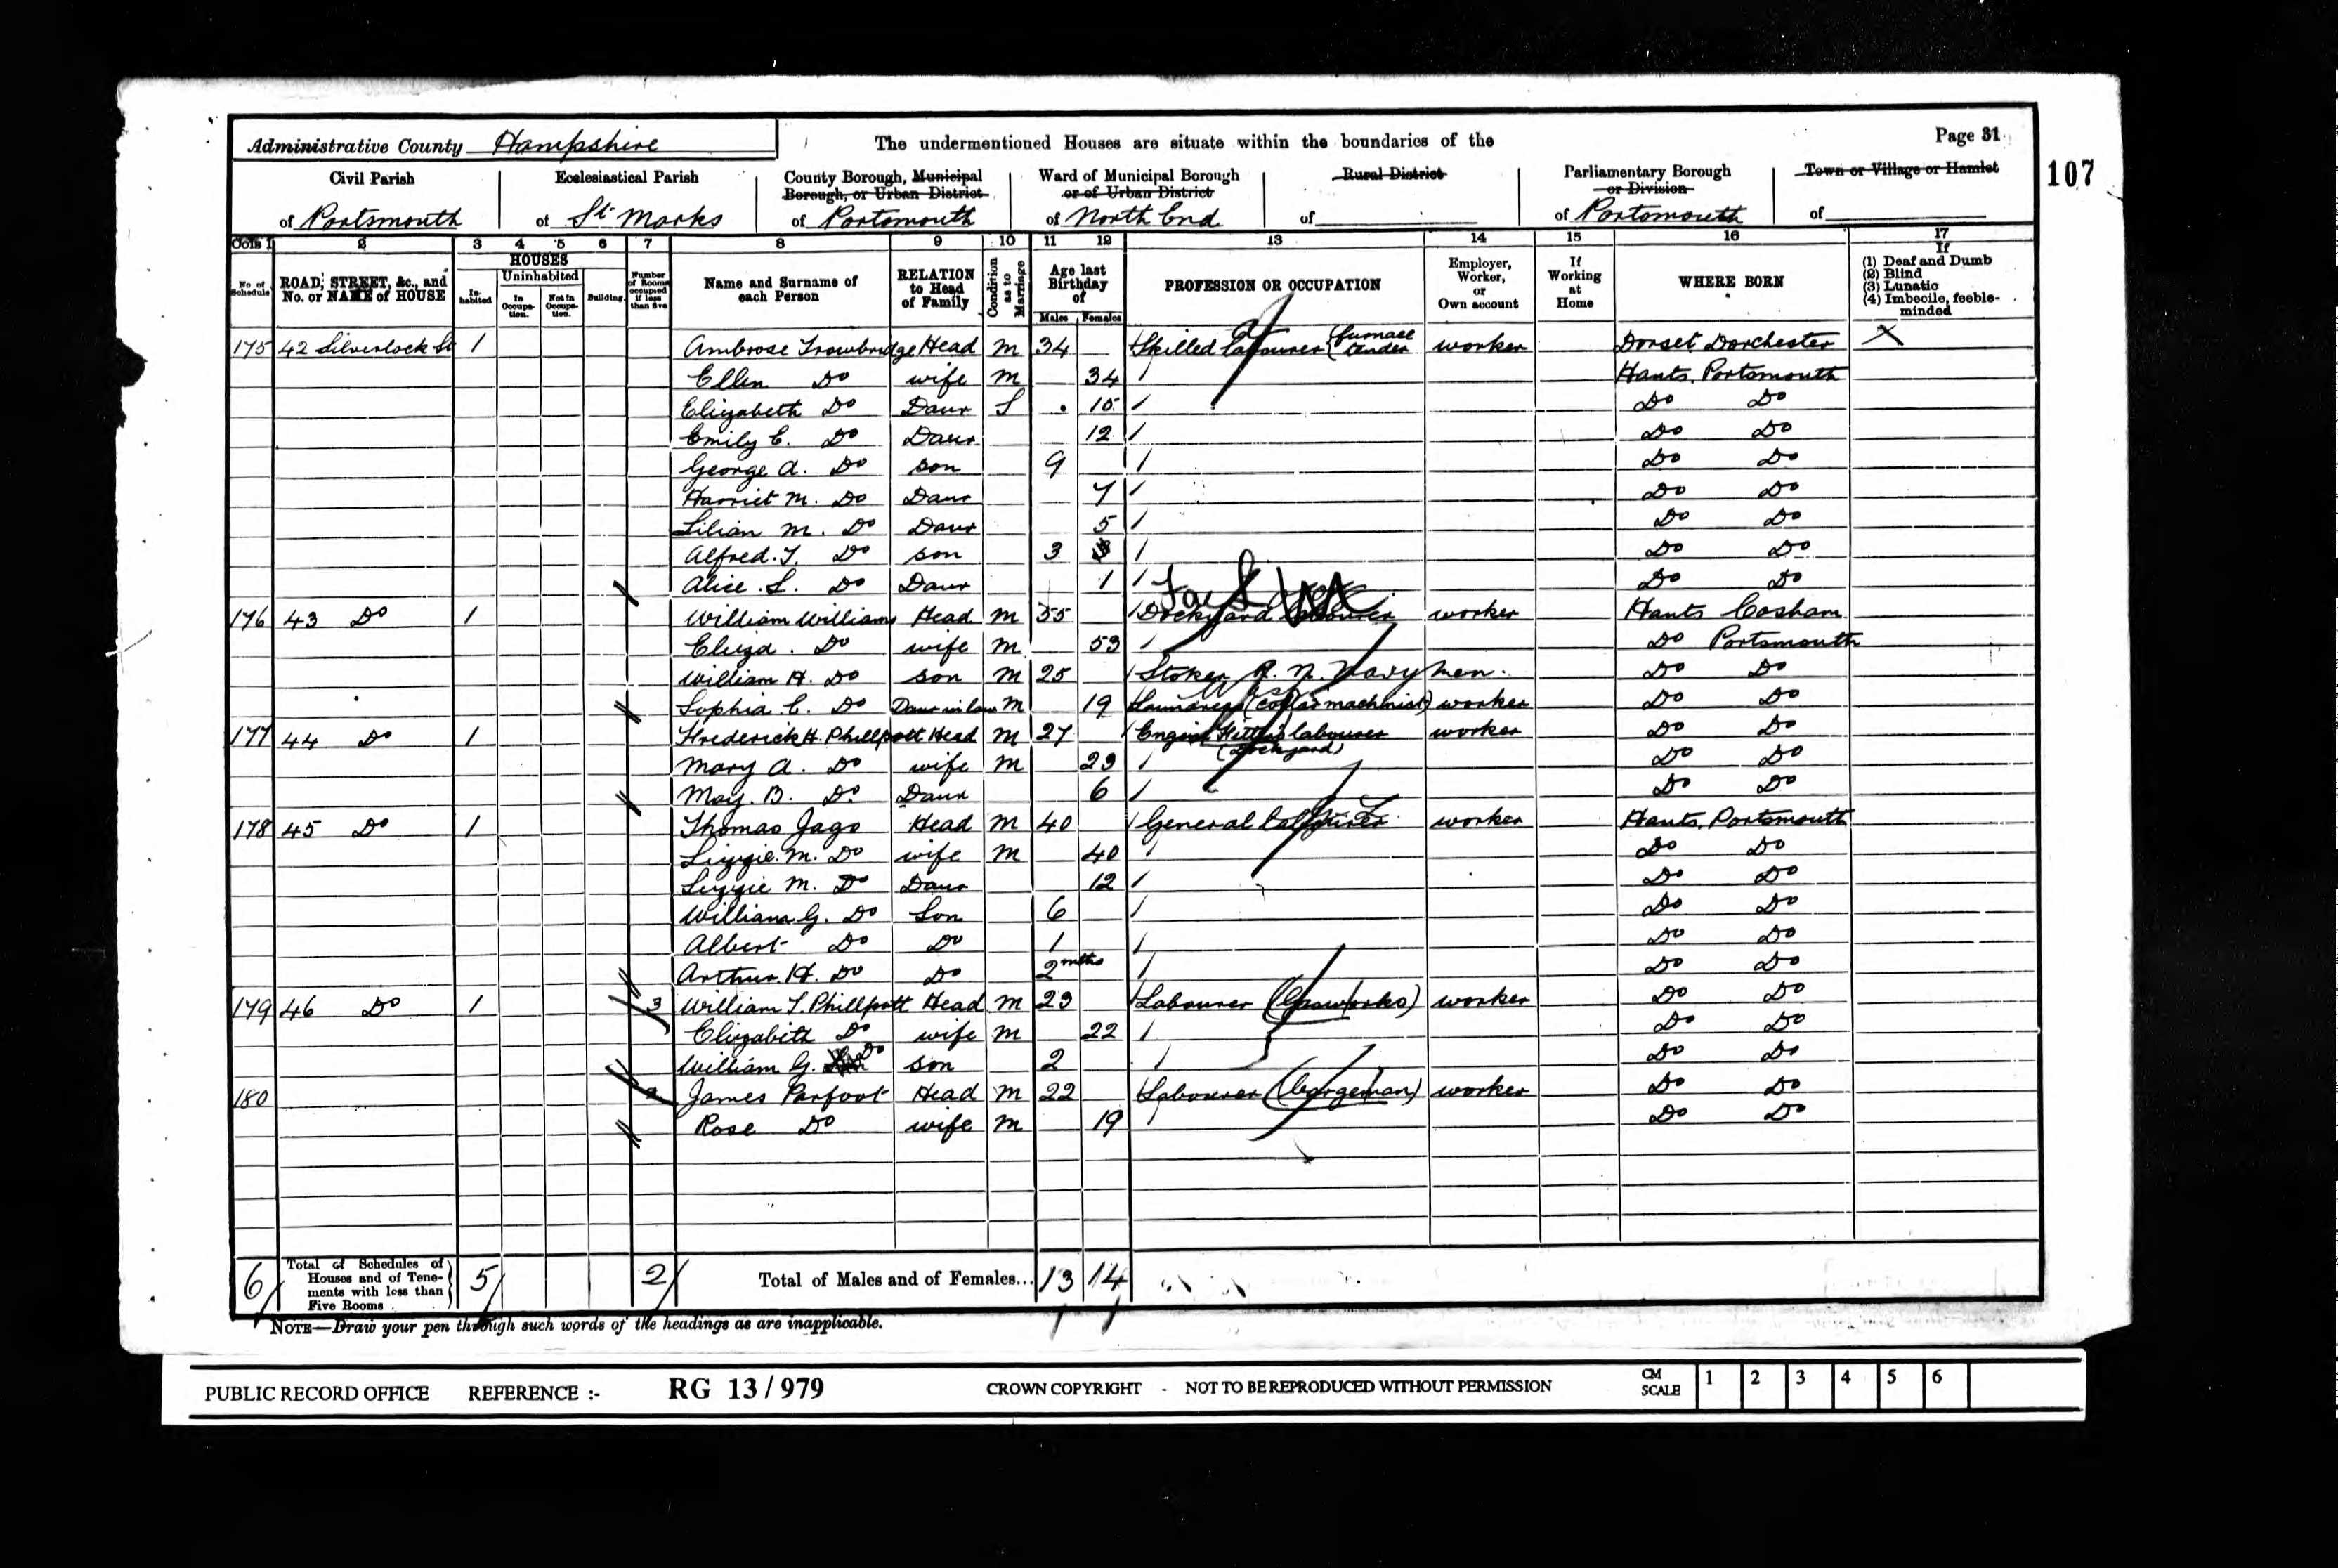 Administrative County Hampshire The undermentioned Houses are situate within the boundaries of the Page 31
107
Civil Parish of Portsmouth
Ecclesiastical Parish of St. Marks
County Borough, Municipal Borough, or Urban District of Portsmouth
Ward of Municipal Borough or of Urban District of North End
Rural District of
Parliamentary Borough or Division of Portsmouth
Town or Village or Hamlet of
Cols 1 2 3 4 5 6 7 8 9 10 11 12 13 14 15 16 17
No. of Schedule
ROAD, STREET, &c., and No. or NAME of HOUSE
HOUSES
Inhabited
Uninhabited
In Occupation.
Not in Occupation.
Building.
Number of Rooms occupied if less than five
Name and Surname of each Person
RELATION to Head of Family
Condition as to Marriage
Age last Birthday of
Males Females
PROFESSION OR OCCUPATION
Employer, Worker, or Own account
If Working at Home
WHERE BORN
If
(1) Deaf and Dumb
(2) Blind
(3) Lunatic
(4) Imbecile, feeble-minded
175 42 Silverlock St 1 Ambrose Trowbridge Head M 34 Skilled labourer (furnace tender worker Dorset Dorchester X
Ellen Do wife M 34 Hants. Portsmouth
Elizabeth Do Daur S 15 Do Do
Emily E. Do Daur 12 Do Do
George A. Do son 9 Do Do
Harriet M. Do Daur 7 Do Do
Lilian M. Do Daur 5 Do Do
Alfred. T. Do son 3 Do Do
Alice. L. Do Daur 1 Do Do
176 43 Do 1 William Williams Head M 55 Dockyard Labourer worker Hants Cosham
Eliza. Do wife M 53 Do Portsmouth
William H. Do son M 25 Stoker R. N. Navy Do Do
Sophia C. Do Daur in law M 19 Laundress (collar machinist) worker Do Do
177 44 Do 1 Frederick H. Phillpott Head M 27 Engine Fitters labourer (Dockyard) worker Do Do
Mary A. Do wife M 29 Do Do
May. B. Do Daur 6 Do Do
178 45 Do 1 Thomas Jago Head M 40 General Labourer worker Hants. Portsmouth
Lizzie. M. Do wife M 40 Do Do
Lizzie M. Do Daur 12 Do Do
William G. Do Son 6 Do Do
Albert Do Do 1 Do Do
Arthur. H. Do Do 2 mths Do Do
179 46 Do 1 3 William T. Phillpott Head M 23 Labourer (Gasworks) worker Do Do
Elizabeth Do wife M 22 Do Do
William G. Do son 2 Do Do
180 James Parfoot Head M 22 Labourer (bargeman) worker Do Do
Rose Do wife M 19 Do Do
6 Total of Schedules of Houses and of Tenements with less than Five Rooms 5 2 Total of Males and of Females... 13 14
NOTE—Draw your pen through such words of the headings as are inapplicable.
PUBLIC RECORD OFFICE REFERENCE :- RG 13/979 CROWN COPYRIGHT - NOT TO BE REPRODUCED WITHOUT PERMISSION CM SCALE 1 2 3 4 5 6